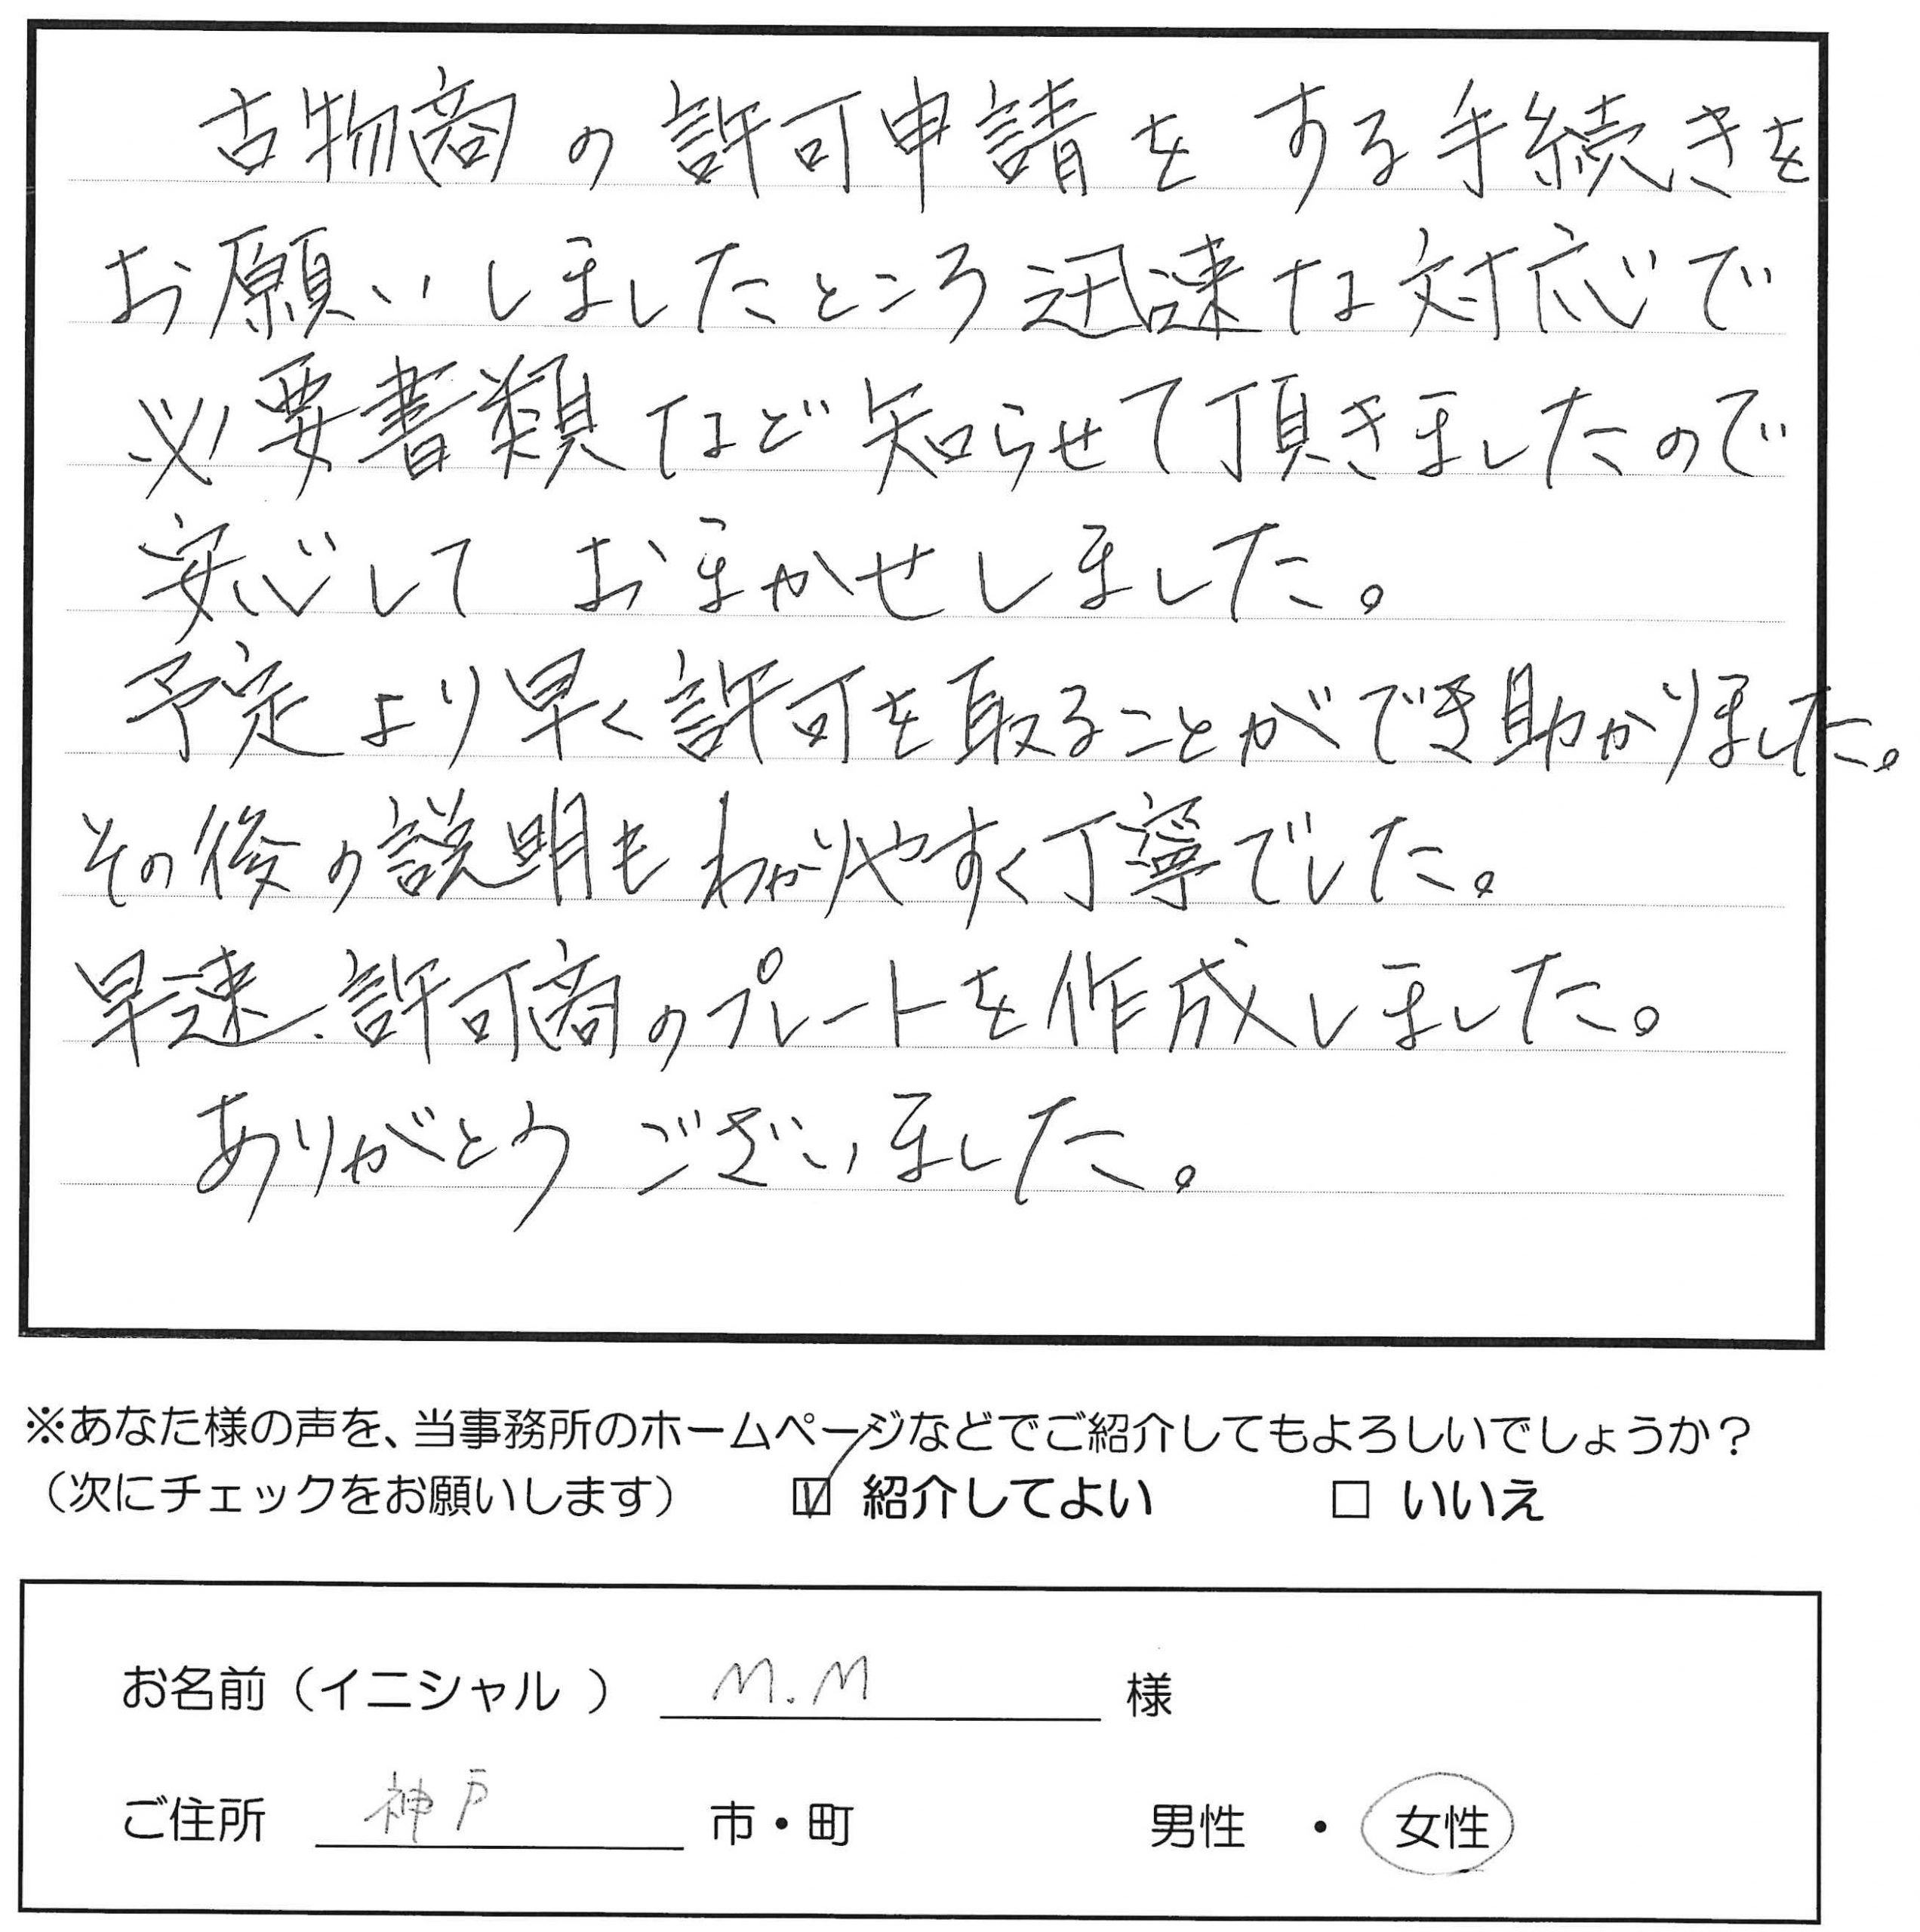 古物商の許可申請をする手続きを
お願いしましたところ迅速な対応で
必要書類など知らせて頂きましたので
安心して おまかせしました。
予定より早く許可を取ることができ助かりました。
その後の説明もわかりやすく丁寧でした。
早速、許可商のプレートを作成しました。
ありがとう ございました。
※あなた様の声を、当事務所のホームページなどでご紹介してもよろしいでしょうか?
(次にチェックをお願いします) ☑ 紹介してよい □ いいえ
お名前(イニシャル) M.M 様
ご住所 神戸 市・町 男性 ・ 女性